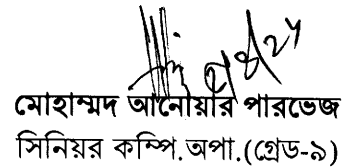 মোহাম্মদ আনোয়ার পারভেজ
সিনিয়র কম্পি.অপা.(গ্রেড-৯)